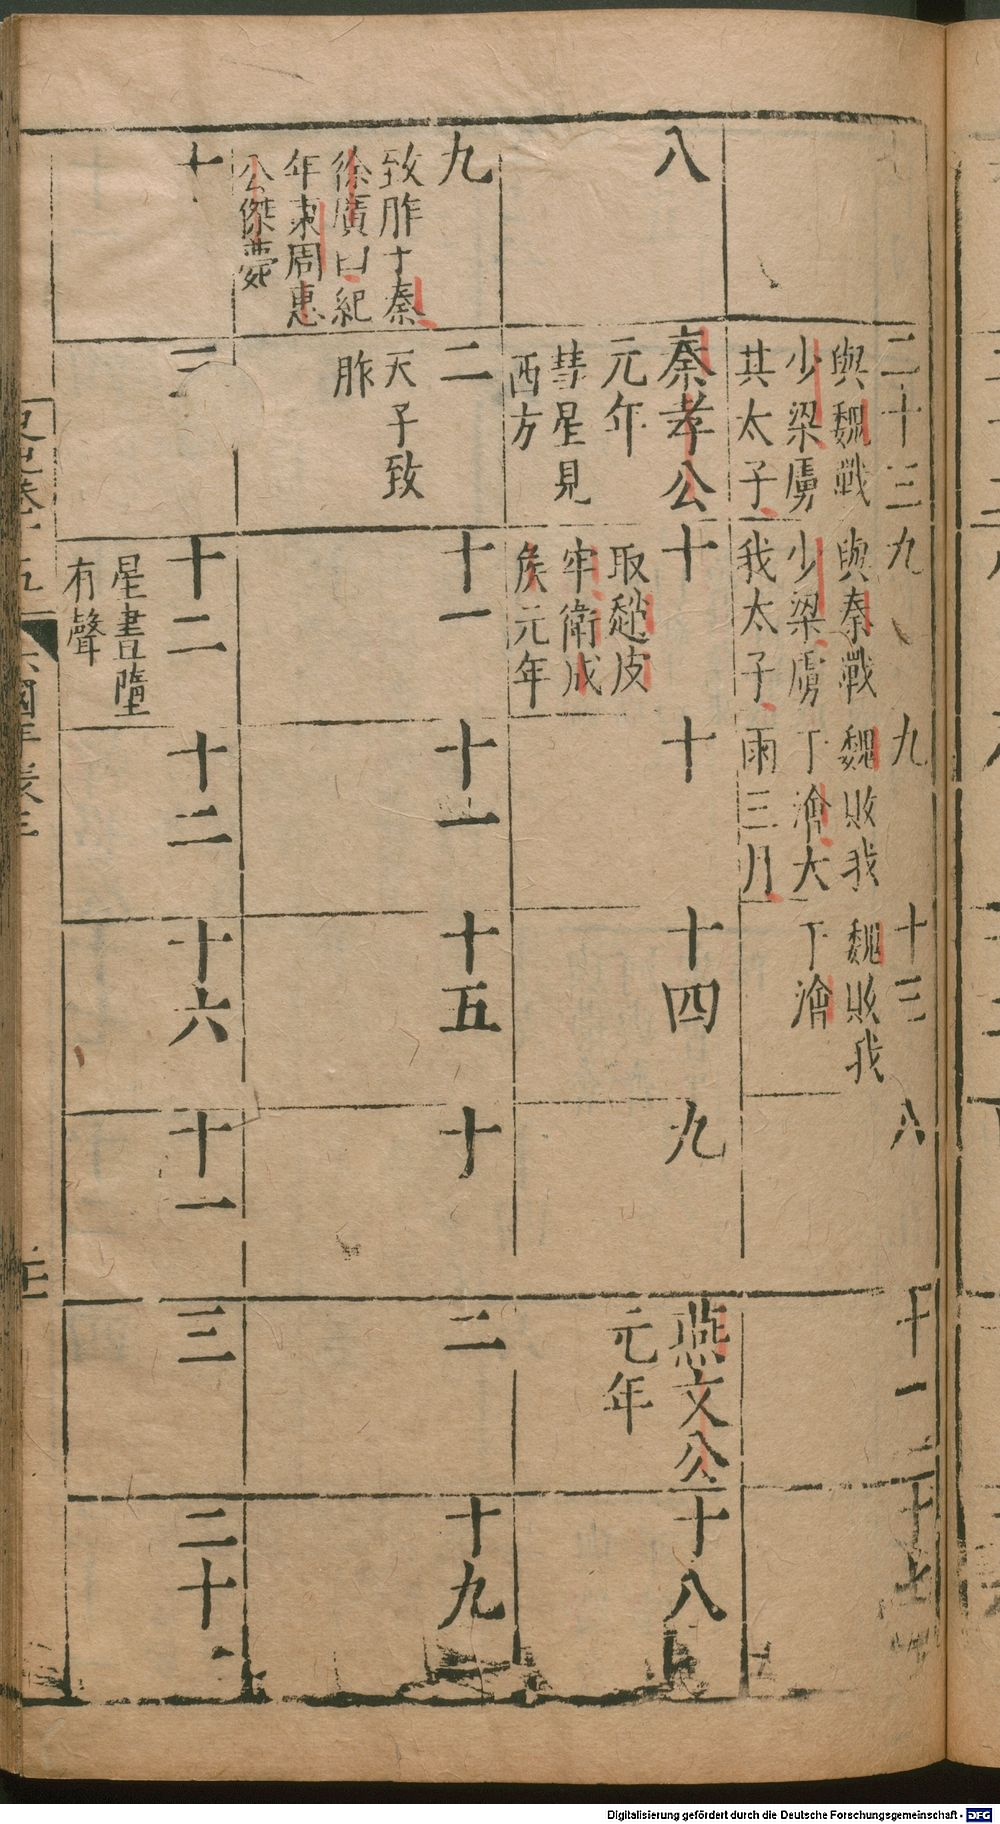 二十三
與魏戰
少梁虜
其太子
九
與秦戰
少梁虜
我太子
九
魏敗我
于澮大
雨三月
十三
魏敗我
于澮
八
十一
十七
八
秦孝公
元年
彗星見
西方
十
取趙皮
牢衛成
侯元年
十
十四
九
燕文公
元年
十八
九
致胙于秦
徐廣曰紀
年東周惠
公傑薨
二
天子致
胙
十一
十一
十五
十
二
十九
十
三
十二
星晝墮
有聲
十二
十六
十一
三
二十
六國年表三
Digitalisierung gefördert durch die Deutsche Forschungsgemeinschaft - DFG